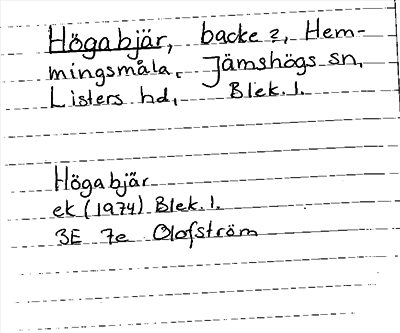 Högabjär, backe 2, Hem-
mingsmåla, Jämshögs sn,
Listers hd, Blek. l.
Högabjär
ek (1974) Blek. l.
3E 7e Olofström